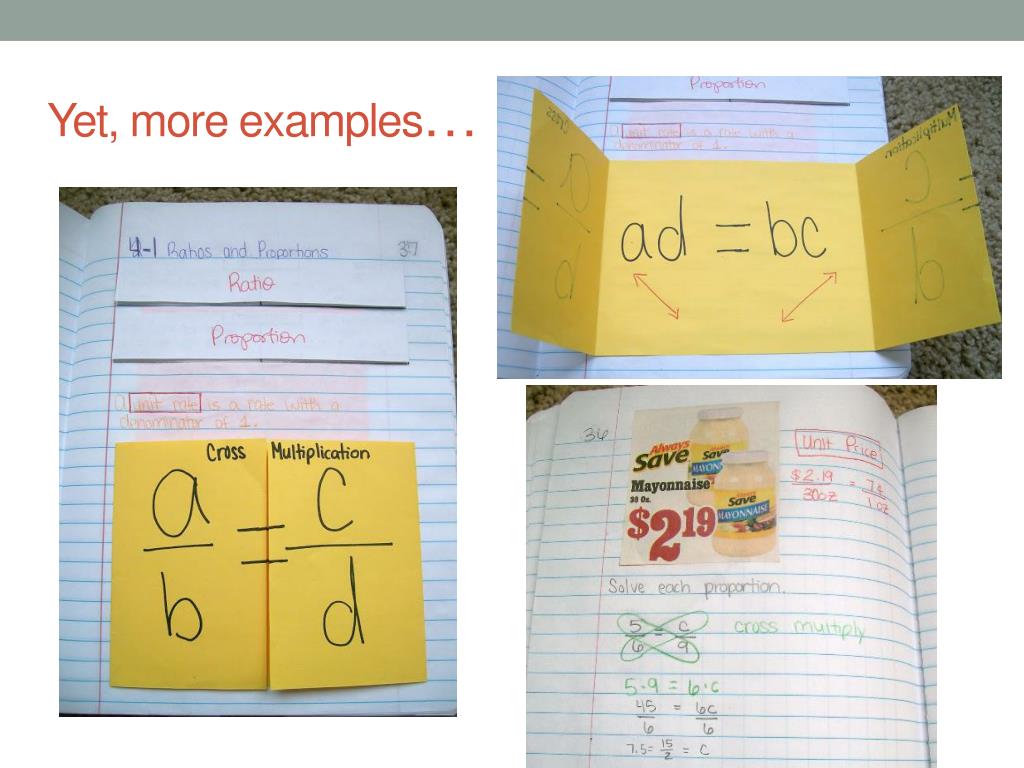 Yet, more examples...
4-1 Ratios and Proportions 37
Ratio
Proportion
a unit rate is a rate with a
denominator of 1.
Cross Multiplication
a/b = c/d
Proportion
a unit rate is a rate with a
denominator of 1.
Cross
Multiplication
ad = bc
36
Always
Save
Mayonnaise
30 Oz.
$2.19
Save
MAYONNAISE
Unit Price
$2.19/30oz = 7¢/1oz
Solve each proportion.
5/6 = c/9 cross multiply
5·9 = 6·c
45/6 = 6c/6
7.5 = 15/2 = c